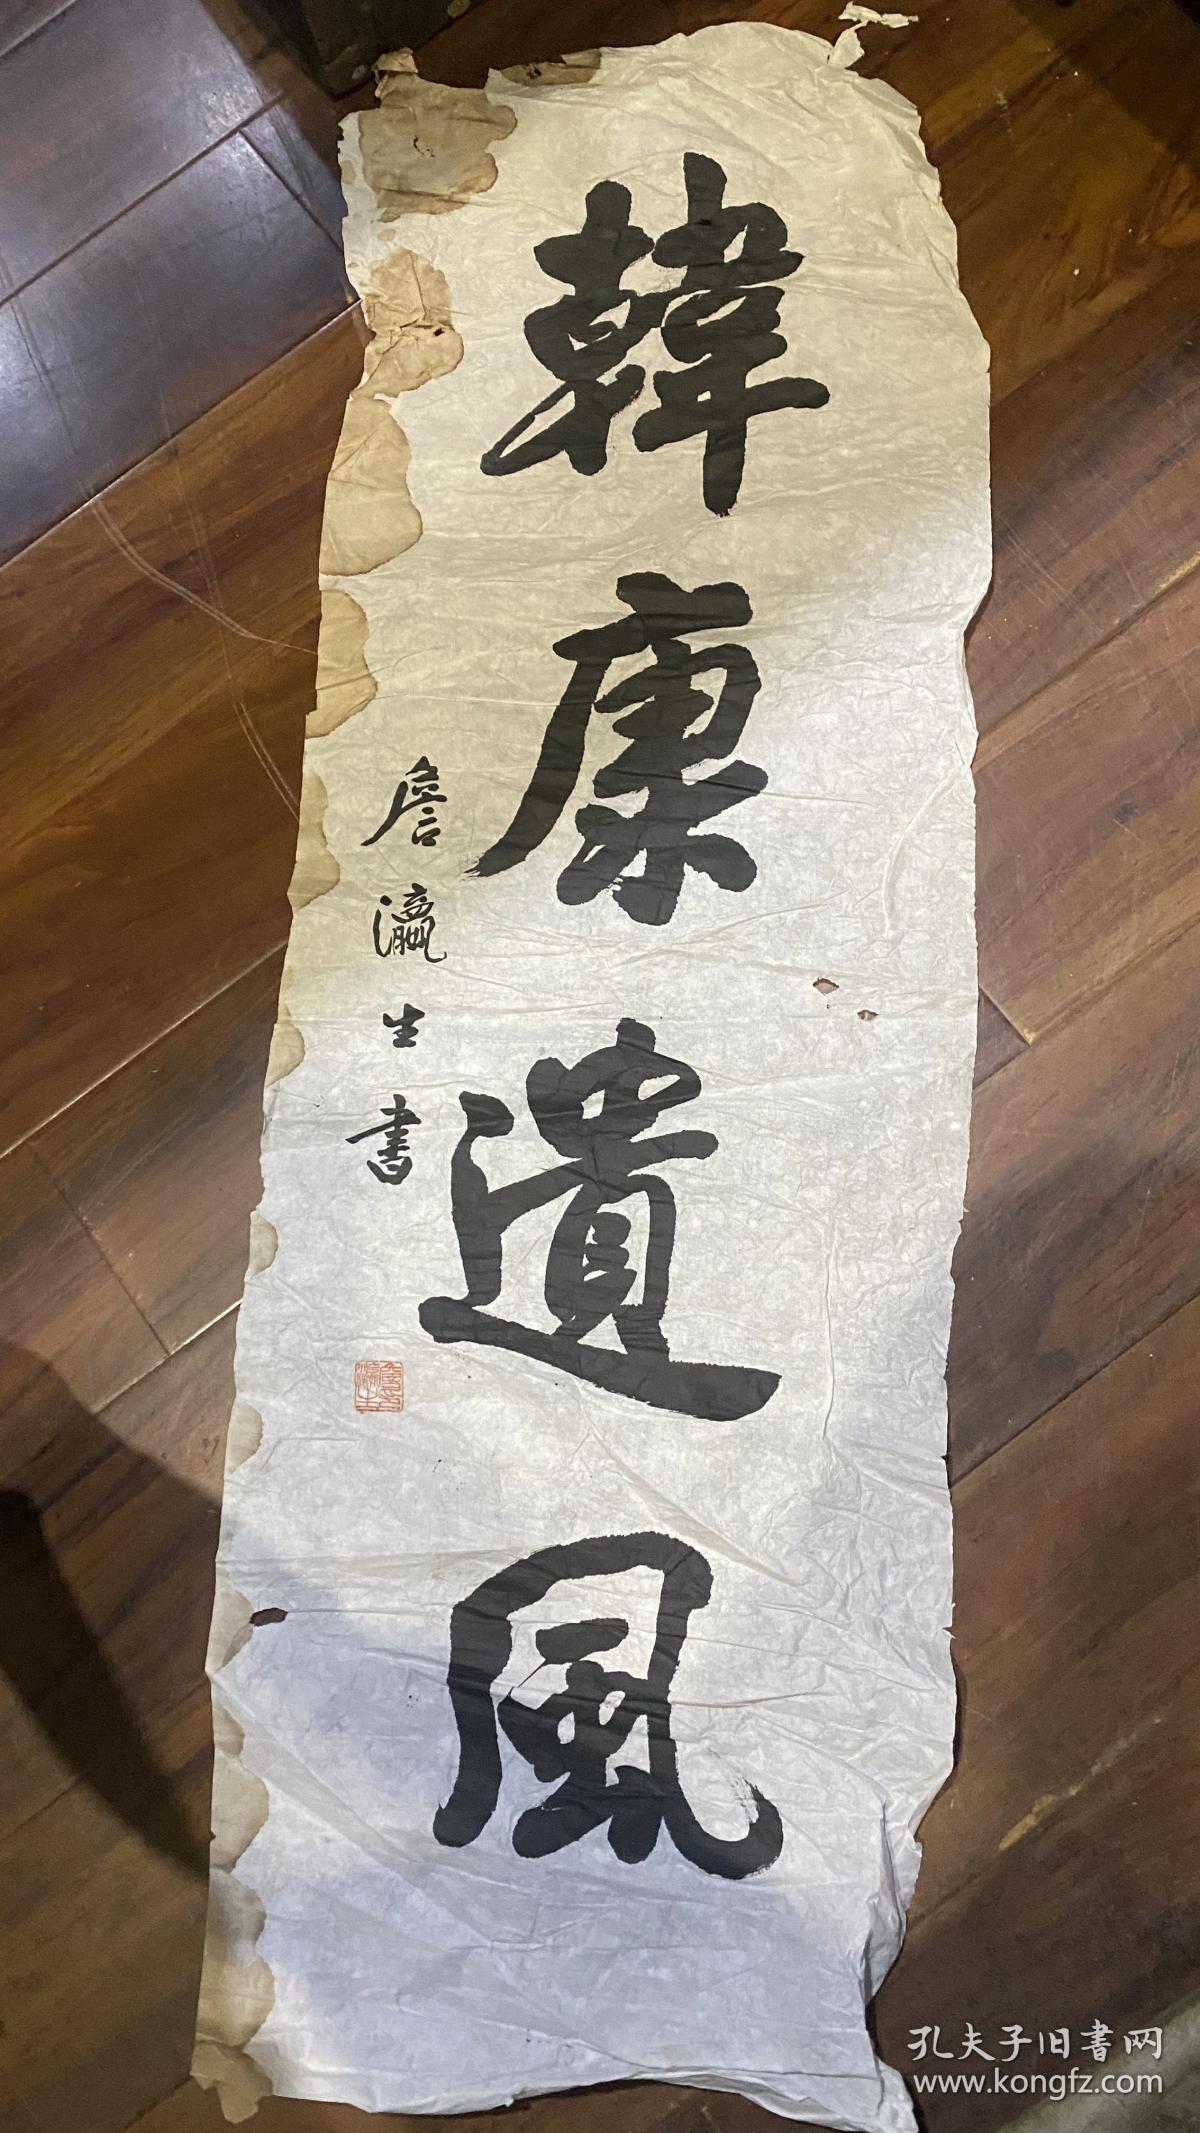 韓康遺風
詹瀛生書
孔夫子旧书网
www.kongfz.com